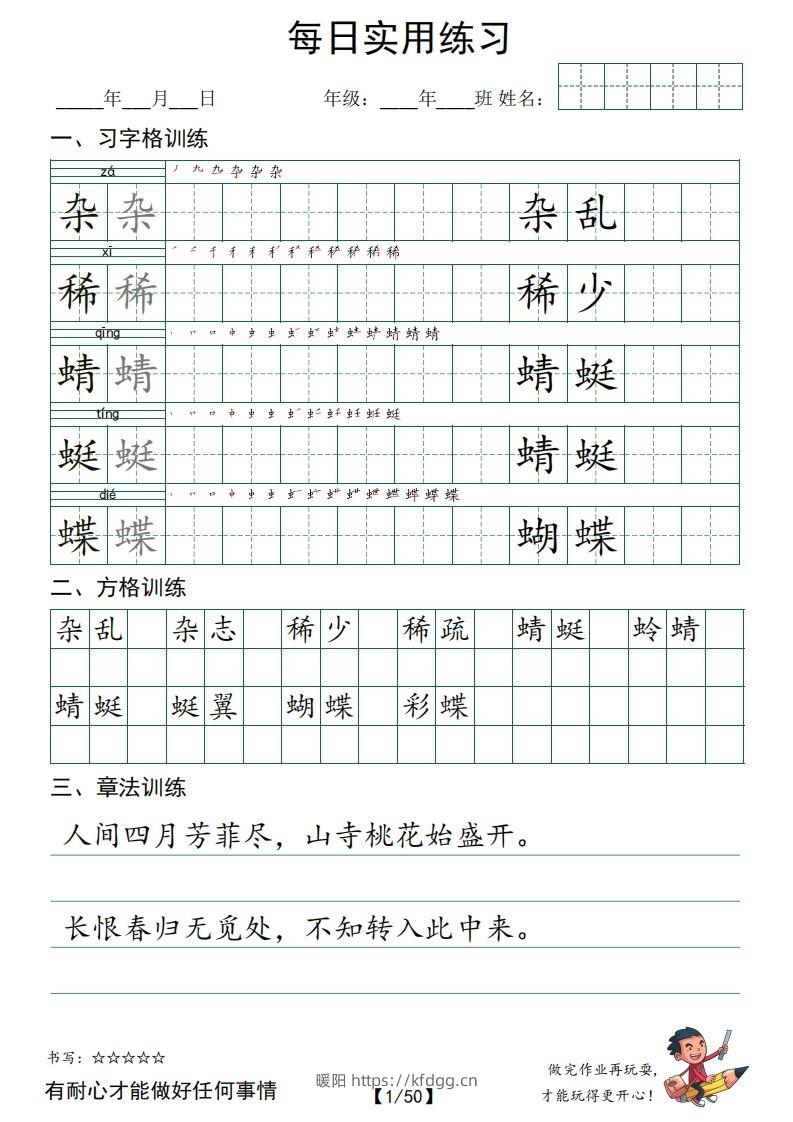 每日实用练习
_____年___月___日 年级：____年____班 姓名：
一、习字格训练
zá
杂 杂 杂 乱
xī
稀 稀 稀 少
qīng
蜻 蜻 蜻 蜓
tíng
蜓 蜓 蜻 蜓
dié
蝶 蝶 蝴 蝶
二、方格训练
杂乱 杂志 稀少 稀疏 蜻蜓 蛉蜻
蜻蜓 蜓翼 蝴蝶 彩蝶
三、章法训练
人间四月芳菲尽，山寺桃花始盛开。
长恨春归无觅处，不知转入此中来。
书写：☆☆☆☆☆
有耐心才能做好任何事情
暖阳 https://kfdgg.cn
【1/50】
做完作业再玩耍，
才能玩得更开心！